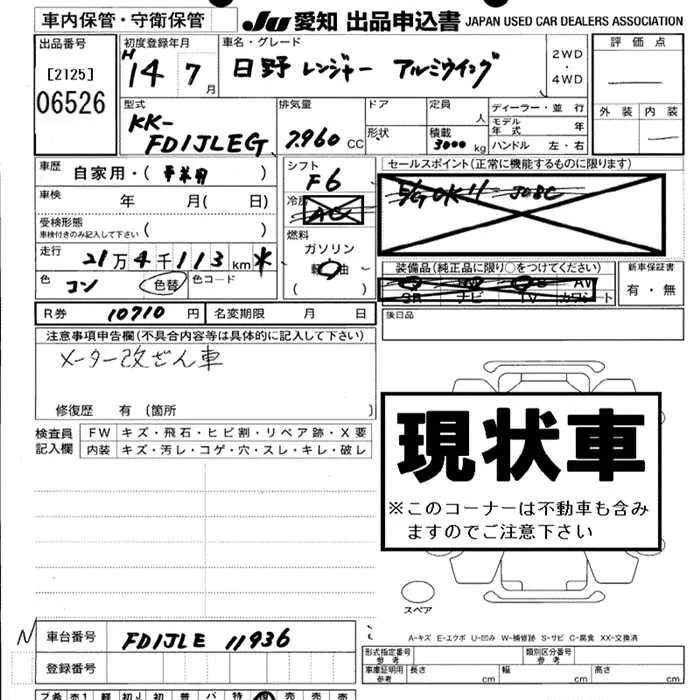 車内保管・守衛保管 JU 愛知 出品申込書 JAPAN USED CAR DEALERS ASSOCIATION
出品番号 初度登録年月 車名・グレード 評価点
[2125] H14年7月 日野 レンジャー アルミウイング 2WD・4WD
06526
型式 排気量 ドア 定員 人 ディーラー・並行 外装 内装
KK-FD1JLEG 7.960 CC 形状 積載 3000 kg モデル年式 年
ハンドル 左・右
車歴 自家用・( ) シフト F6 セールスポイント(正常に機能するものに限ります)
車検 年 月( 日) 冷房 AC 5/GOK!! J08C
受検形態
車検付きのみ記入して下さい ( ) 燃料
走行 21万4千113km ガソリン
軽油 装備品(純正品に限り○をつけてください) 新車保証書
色 コン 色替 色コード ( ) AV 有・無
SR ナビ TV カワシート
R券 10710円 名変期限 月 日 後日品
注意事項申告欄(不具合内容等は具体的に記入して下さい)
メーター改ざん車
修復歴 有 (箇所 )
検査員記入欄 FW キズ・飛石・ヒビ割・リペア跡・X要
内装 キズ・汚レ・コゲ・穴・スレ・キレ・破レ
現状車
※このコーナーは不動車も含み
ますのでご注意下さい
スペア
A-キズ E-エクボ U-凹み W-補修跡 S-サビ C-腐食 XX-交換済
N 車台番号 FD1JLE 11936
登録番号
型式指定番号 参考 類別区分番号 参考
車庫証明用 参考 長さ cm 幅 cm 高さ cm